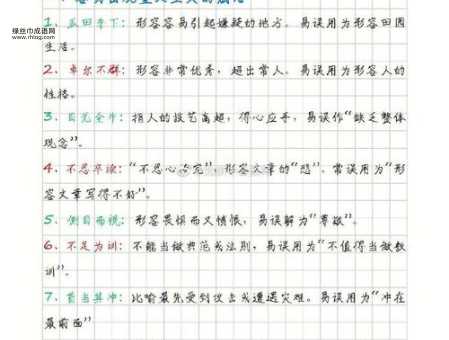 绿丝巾成语网
www.rhtog.com
1、瓜田李下：形容容易引起嫌疑的地方。易误用为形容田园
生活。
2、卓尔不群：形容非常优秀，超出常人。易误用为形容人的
性格。
3、目无全牛：指人的技艺高超，得心应手，易误作“缺乏整体
观念”。
4、不忍卒读：“不忍心读完”形容文章的“悲”，常误用为“形
容文章写得不好”。
5、侧目而视：形容畏惧而又愤恨，易误解为“尊敬”。
6、不足为训：不能当做典范或法则，易误用为“不值得当做教
训”。
7、首当其冲：比喻最先受到攻击或遭遇灾难。易误用为“冲在
最前面”